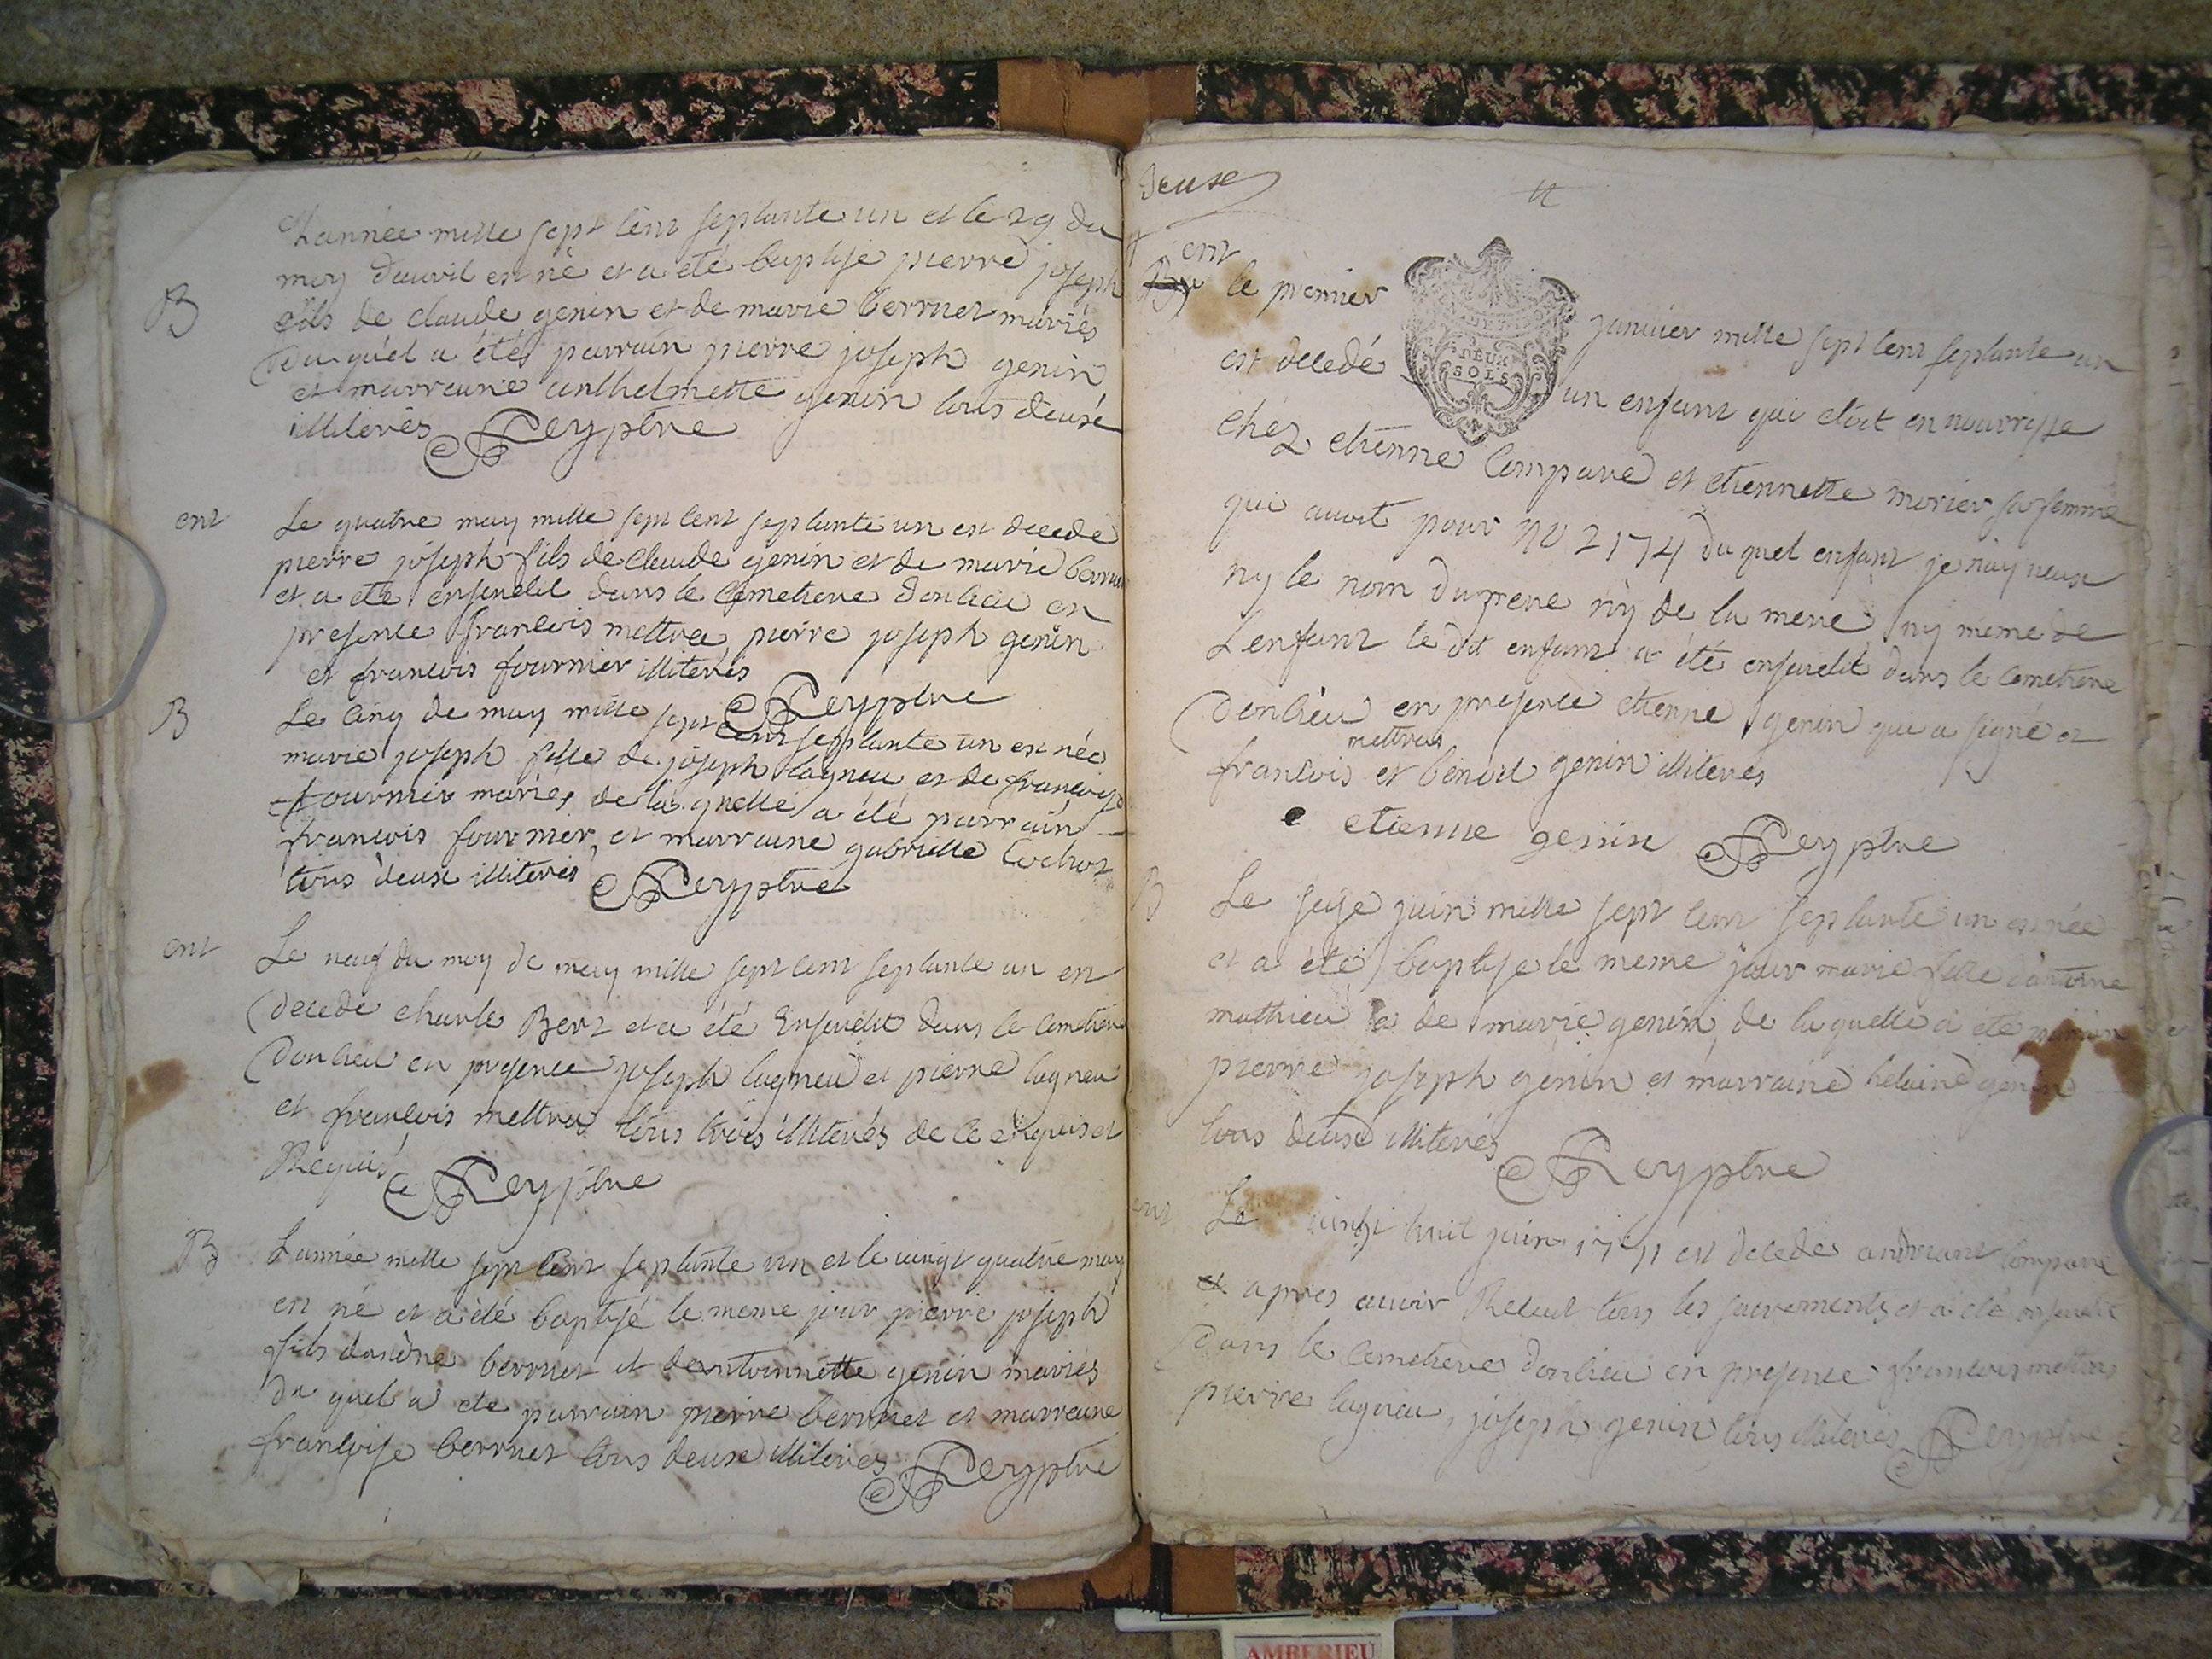 L'année mille sept cent septante un et le 29 du
moy d'auvil est né et a été baptisé pierre joseph
B
fils de claude genin et de marie berruet mariés
du quel a été parrain pierre joseph genin
et marraine anthelmette genin tous deuse
illiterés Reyptre
ent
Le quatre may mille sept cent septante un est decedé
pierre joseph fils de claude genin et de marie berruet
et a été ensevelit dans le Cemetiere d'onlieu en
presence francois mettra, pierre joseph genin
et francois fournier illiterés
Reyptre
B
Le cinq de may mille sept cent septante un est née
marie joseph fille de joseph lagneu et de francoise
fournier mariés de la quelle a été parrain
francois fournier et marraine gabrielle Cochot
tous deuse illiterés Reyptre
ent
Le neuf du moy de may mille sept cent septante un est
decedé charle Bert et a été Ensevelit dans le Cemetiere
donlieu en presence joseph lagneu et pierre lagneu
et francois mettra tous trois illiterés de ce enquis et
Requis Reyptre
B
L'année mille sept cent septante un et le vingt quatre may
est né et a été baptisé le meme jour pierre joseph
fils dantoine berruet et dentoinnette genin mariés
du quel a été parrain pierre berruet et marraine
francoise berruet tous deuse illiterés Reyptre
deuse
ent
le premier janvier mille sept cent septante un
DEUX
SOLS
est decedé un enfant qui etoit en nourrisse
chéz etienne Compare et etiennette morier sa femme
qui avoit pour nu 2174 du quel enfant je n'ay neuse
ny le nom du pere n'y de la mere ny meme de
L'enfant le dit enfant a été ensevelit dans le Cemetiere
d'onlieu en presence etienne genin qui a signé et
mettra
francois et benoit genin illiterés
etienne genin Reyptre
B
Le seise juin mille sept cent septante un est née
et a été baptisé le meme jour marie fille dantoine
mathieu et de marie genin de la quelle a été parrain
pierre joseph genin et marraine helaine genin
tous deuse illiterés
Reyptre
ent
Le vingt huit juin 1771 est decedé Compare
apres avoir Receut tous les sacrements et a été ensevelit
dans le Cemetiere donlieu en presence francois mettra
pierre lagneu, joseph genin tous illiterés Reyptre
AMBERIEU